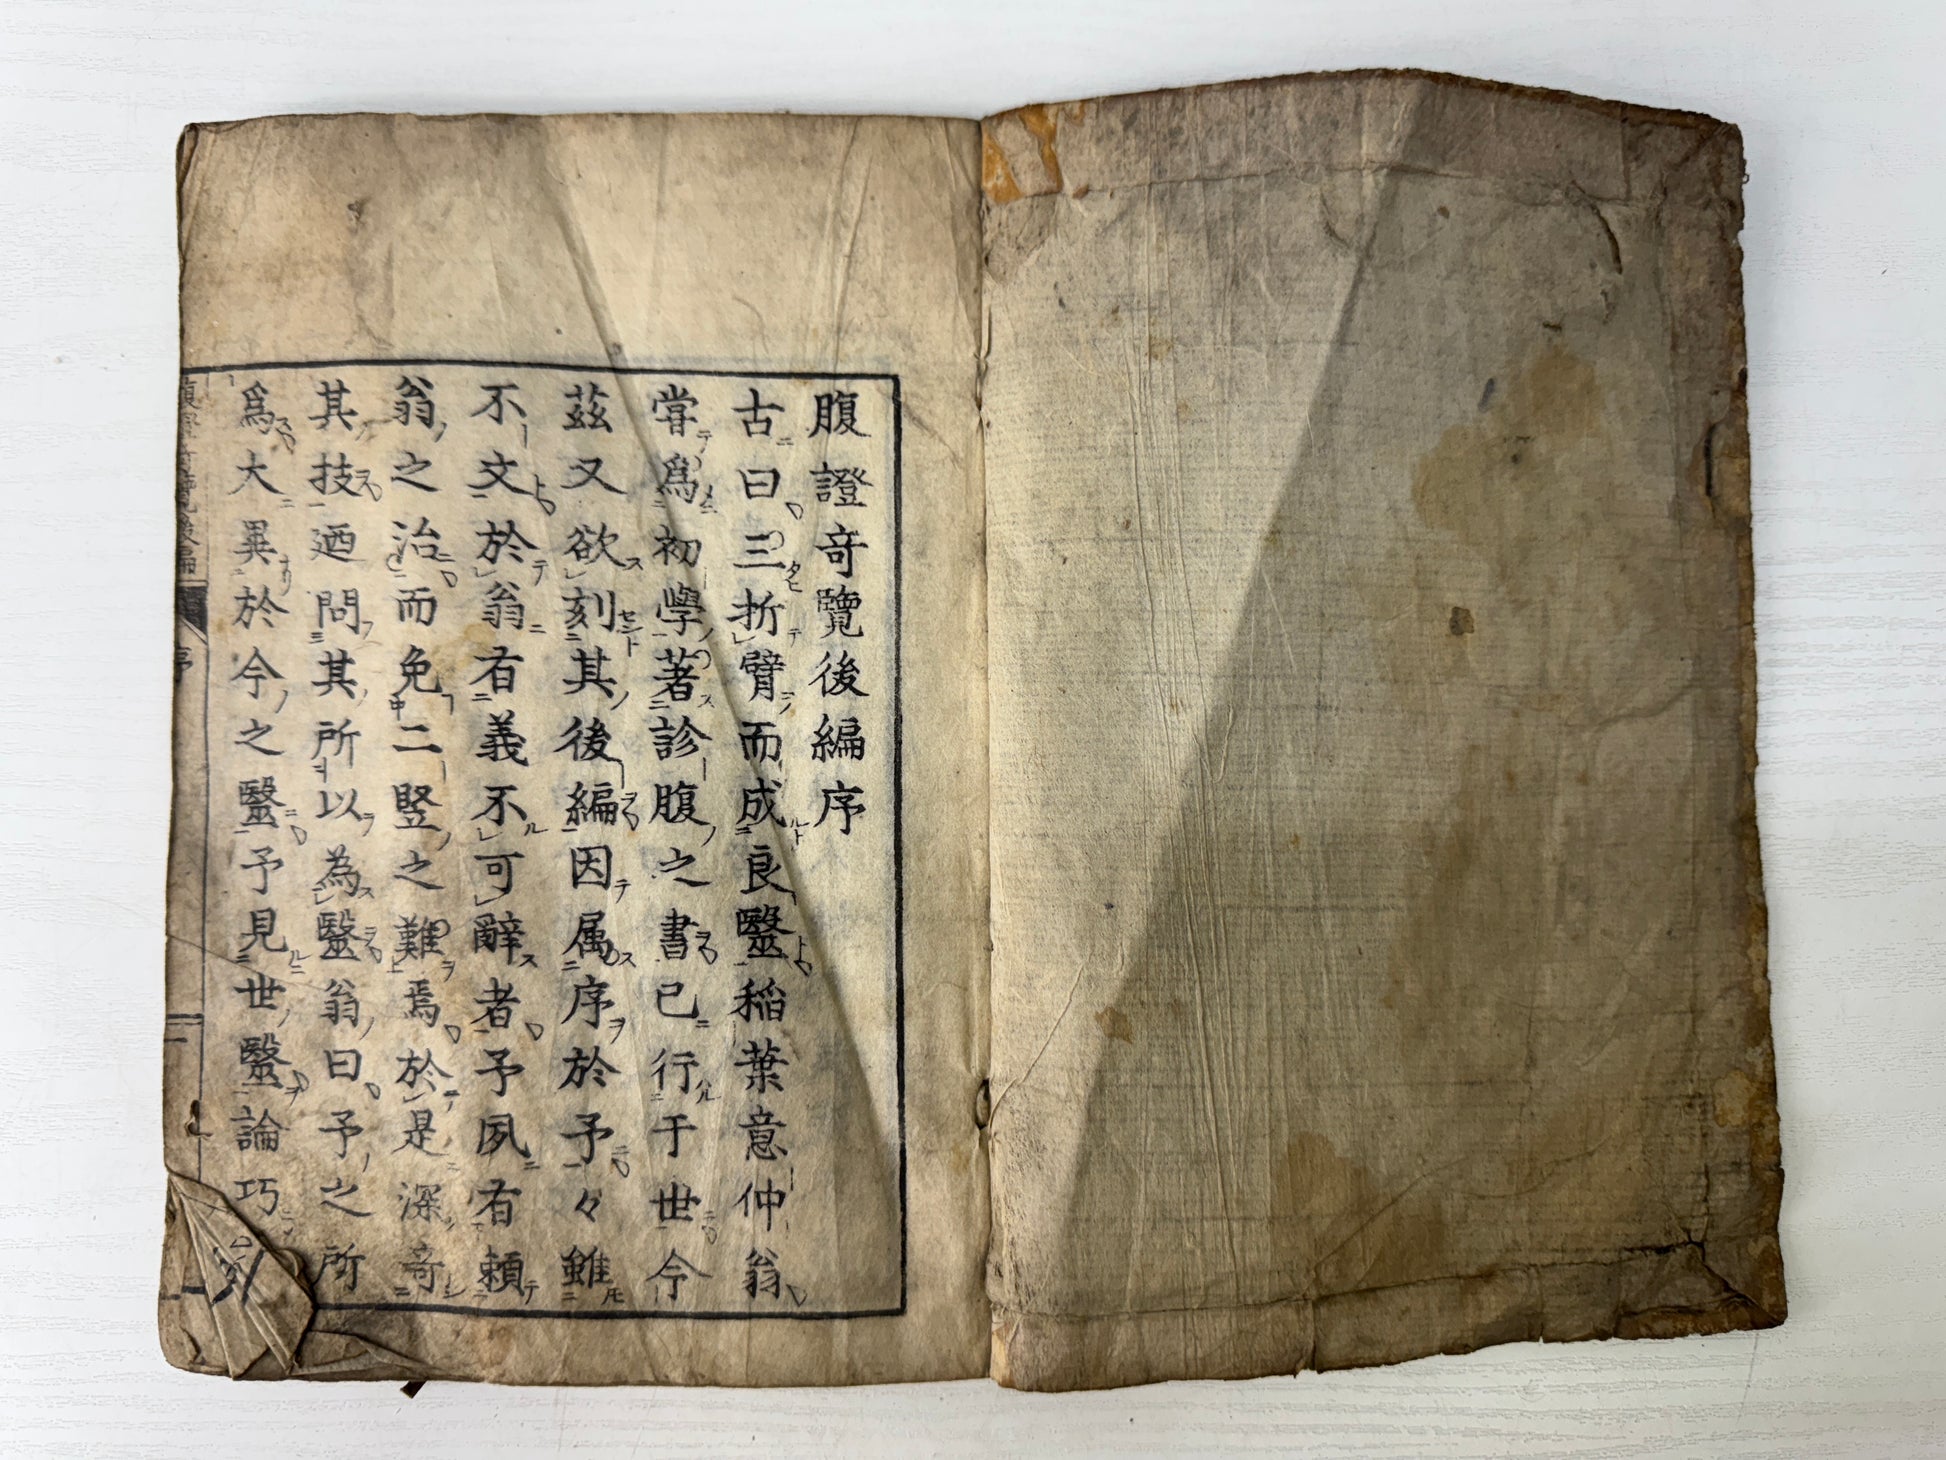 腹證奇覽後編序
古曰三折臂而成良毉稲葉意仲翁
甞爲初學著診腹之書已行于世今
茲又欲刻其後編因属序於予々雖
不文於翁有義不可辭者予夙有頼
翁之治而免二竪之難焉於是深奇
其技迺問其所以為毉翁曰予之所
爲大異於今之毉予見世毉論巧